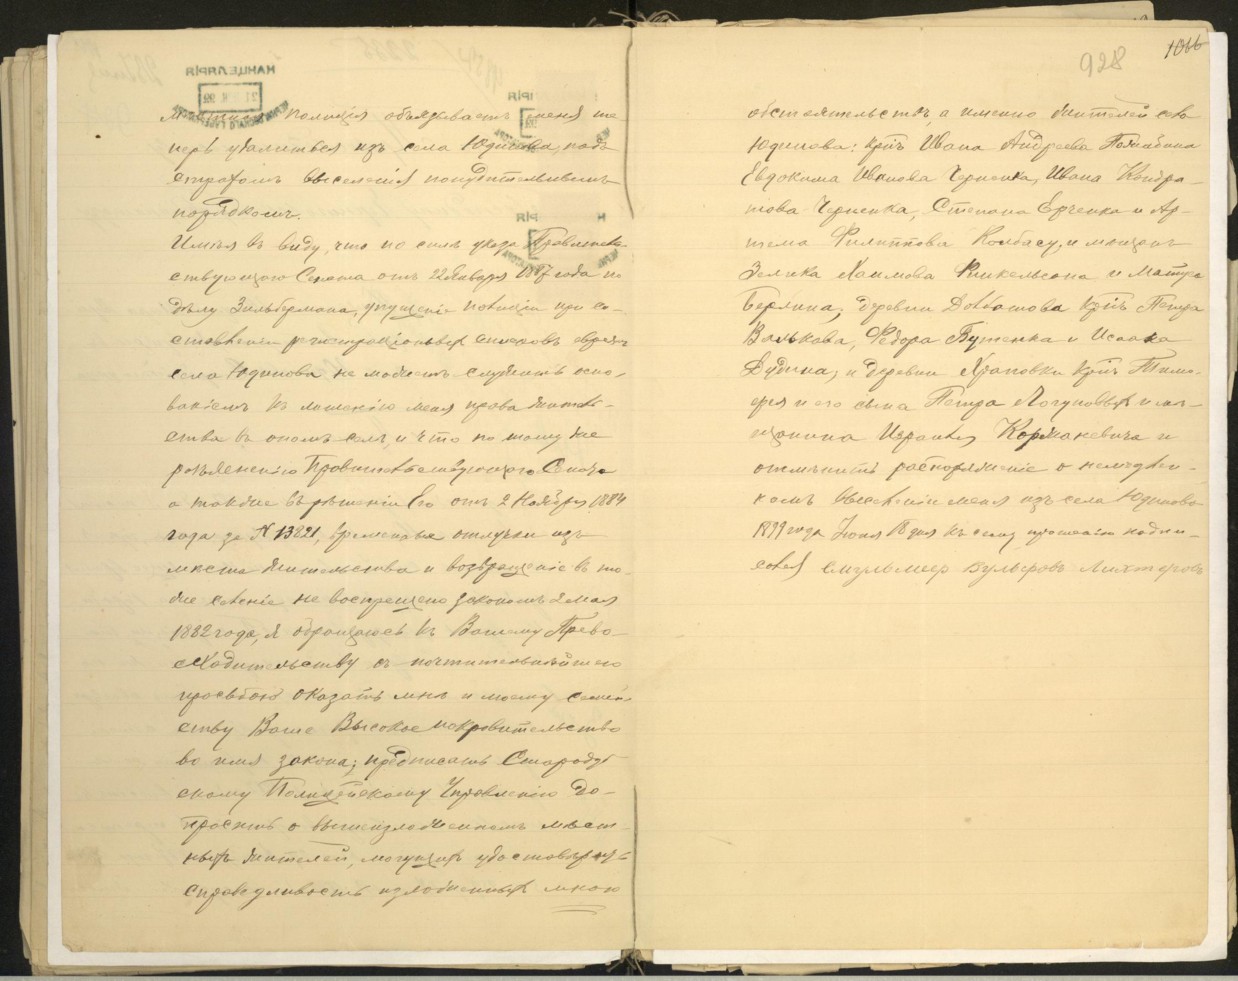 Мѣстная полиція обязываетъ меня те
перь удалиться изъ села Юдинова, подъ
страхомъ выселенія понудительнымъ
порядкомъ.
Имѣя въ виду, что по силѣ указа Правитель
ствующаго Сената отъ 22 Января года по
дѣлу Зильбермана, упущеніе полиціи при со-
ставленіи регистраціонныхъ списковъ евреевъ
села Юдинова не можетъ служить осно-
ваніемъ къ лишенію меня права житель-
ства въ ономъ селѣ, и что по тому же
разъясненію Правительствующаго Сената
а также въ рѣшеніи Его отъ 2 Ноября 1884
года за № 13821, временныя отлучки изъ
мѣста жительства и возвращеніе въ то-
же селеніе не воспрещено закономъ 2 мая
1882 года, я обращаюсь къ Вашему Прево-
сходительству съ почтительнѣйшею
просьбою оказать мнѣ и моему семей-
ству Ваше Высокое покровительство
во имя закона; предписать Стародуб-
скому Полицейскому Управленію до-
просить о вышеизложенномъ мѣст-
ныхъ жителей, могущихъ удостовѣрить
справедливость изложенныхъ мною
928
1066
обстоятельствъ, а именно жителей села
Юдинова: кр. Ивана Андреева
Евдокима Иванова Черненка, Ивана Кондра-
това Черненка, Степана Ерченка и Ар-
тема Филиппова Колбасу, и мѣщанъ
Зелика Хаимова Финкельсона и
Берлина, деревни кр. Петра
Валькова, Федора Бутенка и Исаака
Дудина, и деревни Храповки кр. Тимо-
фея и его сына Петра Логуновыхъ и мѣ-
щанина Израиля и
отмѣнить распоряженіе о немедлен-
номъ выселеніи меня изъ села Юдинова
1899 года Іюня 18 дня къ сему прошенію подпи-
сался
КАНЦЕЛЯРІЯ